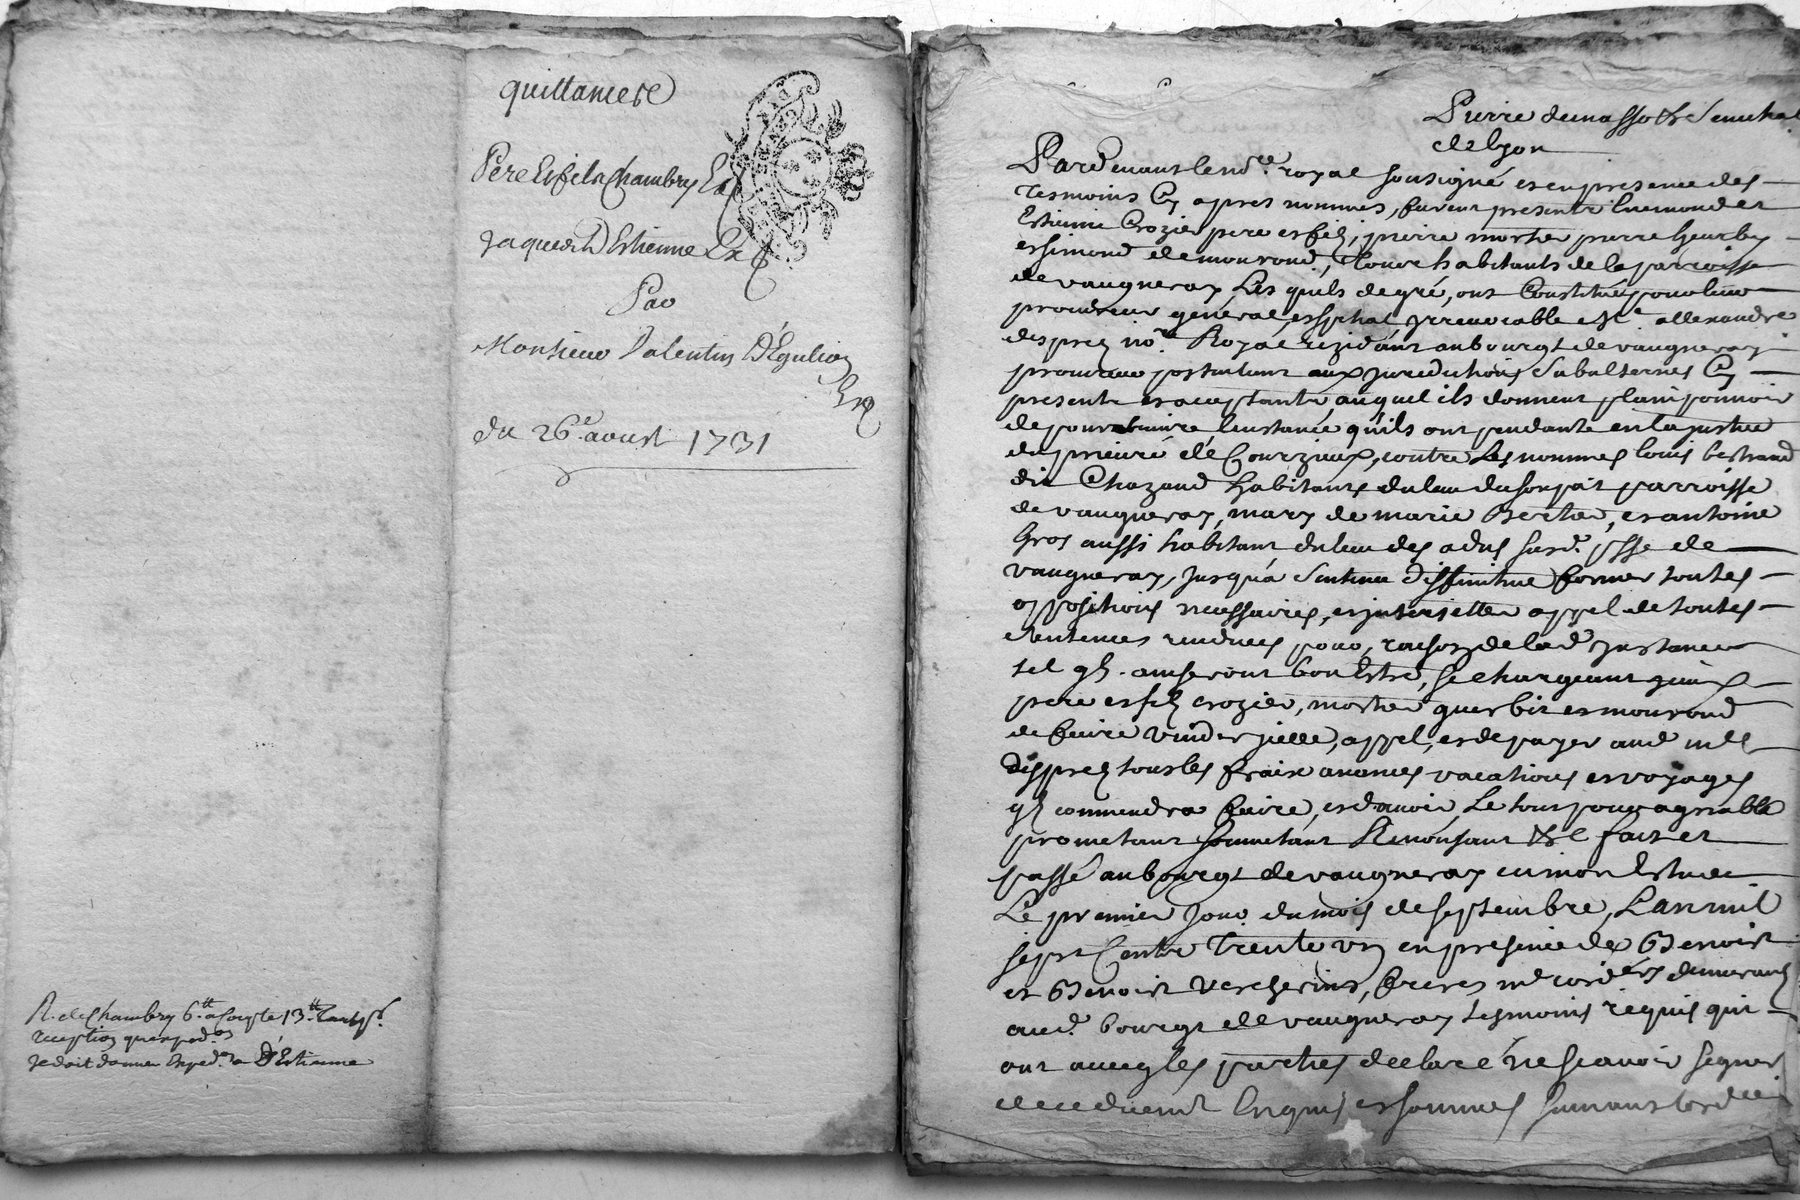 quittances
Pere Et fils Chambry Et
Jaques D'Estienne Et
Par
Monsieur Valentin D'Eguilion
Et
du 26e. aoust 1731
R. de Chambry 6tt a compte 13tt
reception qu'exped.on
je doit donner Exped.on a D'Estienne
Pierre de masso &c Senechal
de lyon
Pardevant le no.re royal sousigné et en presence des
tesmoins Cy apres nommes, furent presents
Estienne Crozier pere et fils, pierre mortier pierre
et simond de mourond, Tous habitants de la parroisse
de vaugneray Les quels de gré, ont Constitué pour leur
procureur général et spécial, jrrevocable Me. allexandre
desprez no.re Royal rezidant au bourgt de vaugneray
procureur postulant aux jurisdictions Subalternes Cy
present et acceptant, auquel ils donnent plain pouvoir
de poursuivre l'instance quils ont pendante en la justice
du prieuré de Courzieux, contre Les nommes louis bertrand
dit Chazaud habitants du lieu du parroisse
de vaugneray, mary de marie Bertier, et antoine
Gros aussi habitant du lieu des adus sus.d psse de
vaugneray, Jusqu'a Sentence diffinitive former toutes
oppositions necessaires, et jnterjetter appel de toutes
Sentences rendues pour raison de la d. jnstance
tel qls. auiseront bon Estre, se chargeant
pere et fils crozier, mortier et mourond
de faire vuider jcelle, appel, et de payer aud. me
desprez tous les fraix avances vacations et voyages
ql conviendra faire, et d'avoir Le tout pour agreable
prometant soumetant Renonsant &c fait et
passé au bourgt de vaugneray en mon Estude
Le premier jour du mois de septembre, L'an mil
sept Cents Trente un en presence de Benoist
et Benoist Vercherins, freres me cord.ers demeurants
aud. bourgt de vaugneray tesmoins requis qui
ont avec les parties declaré ne scavoir signer
de ce duement Enquis et sommes suivant lord.ce